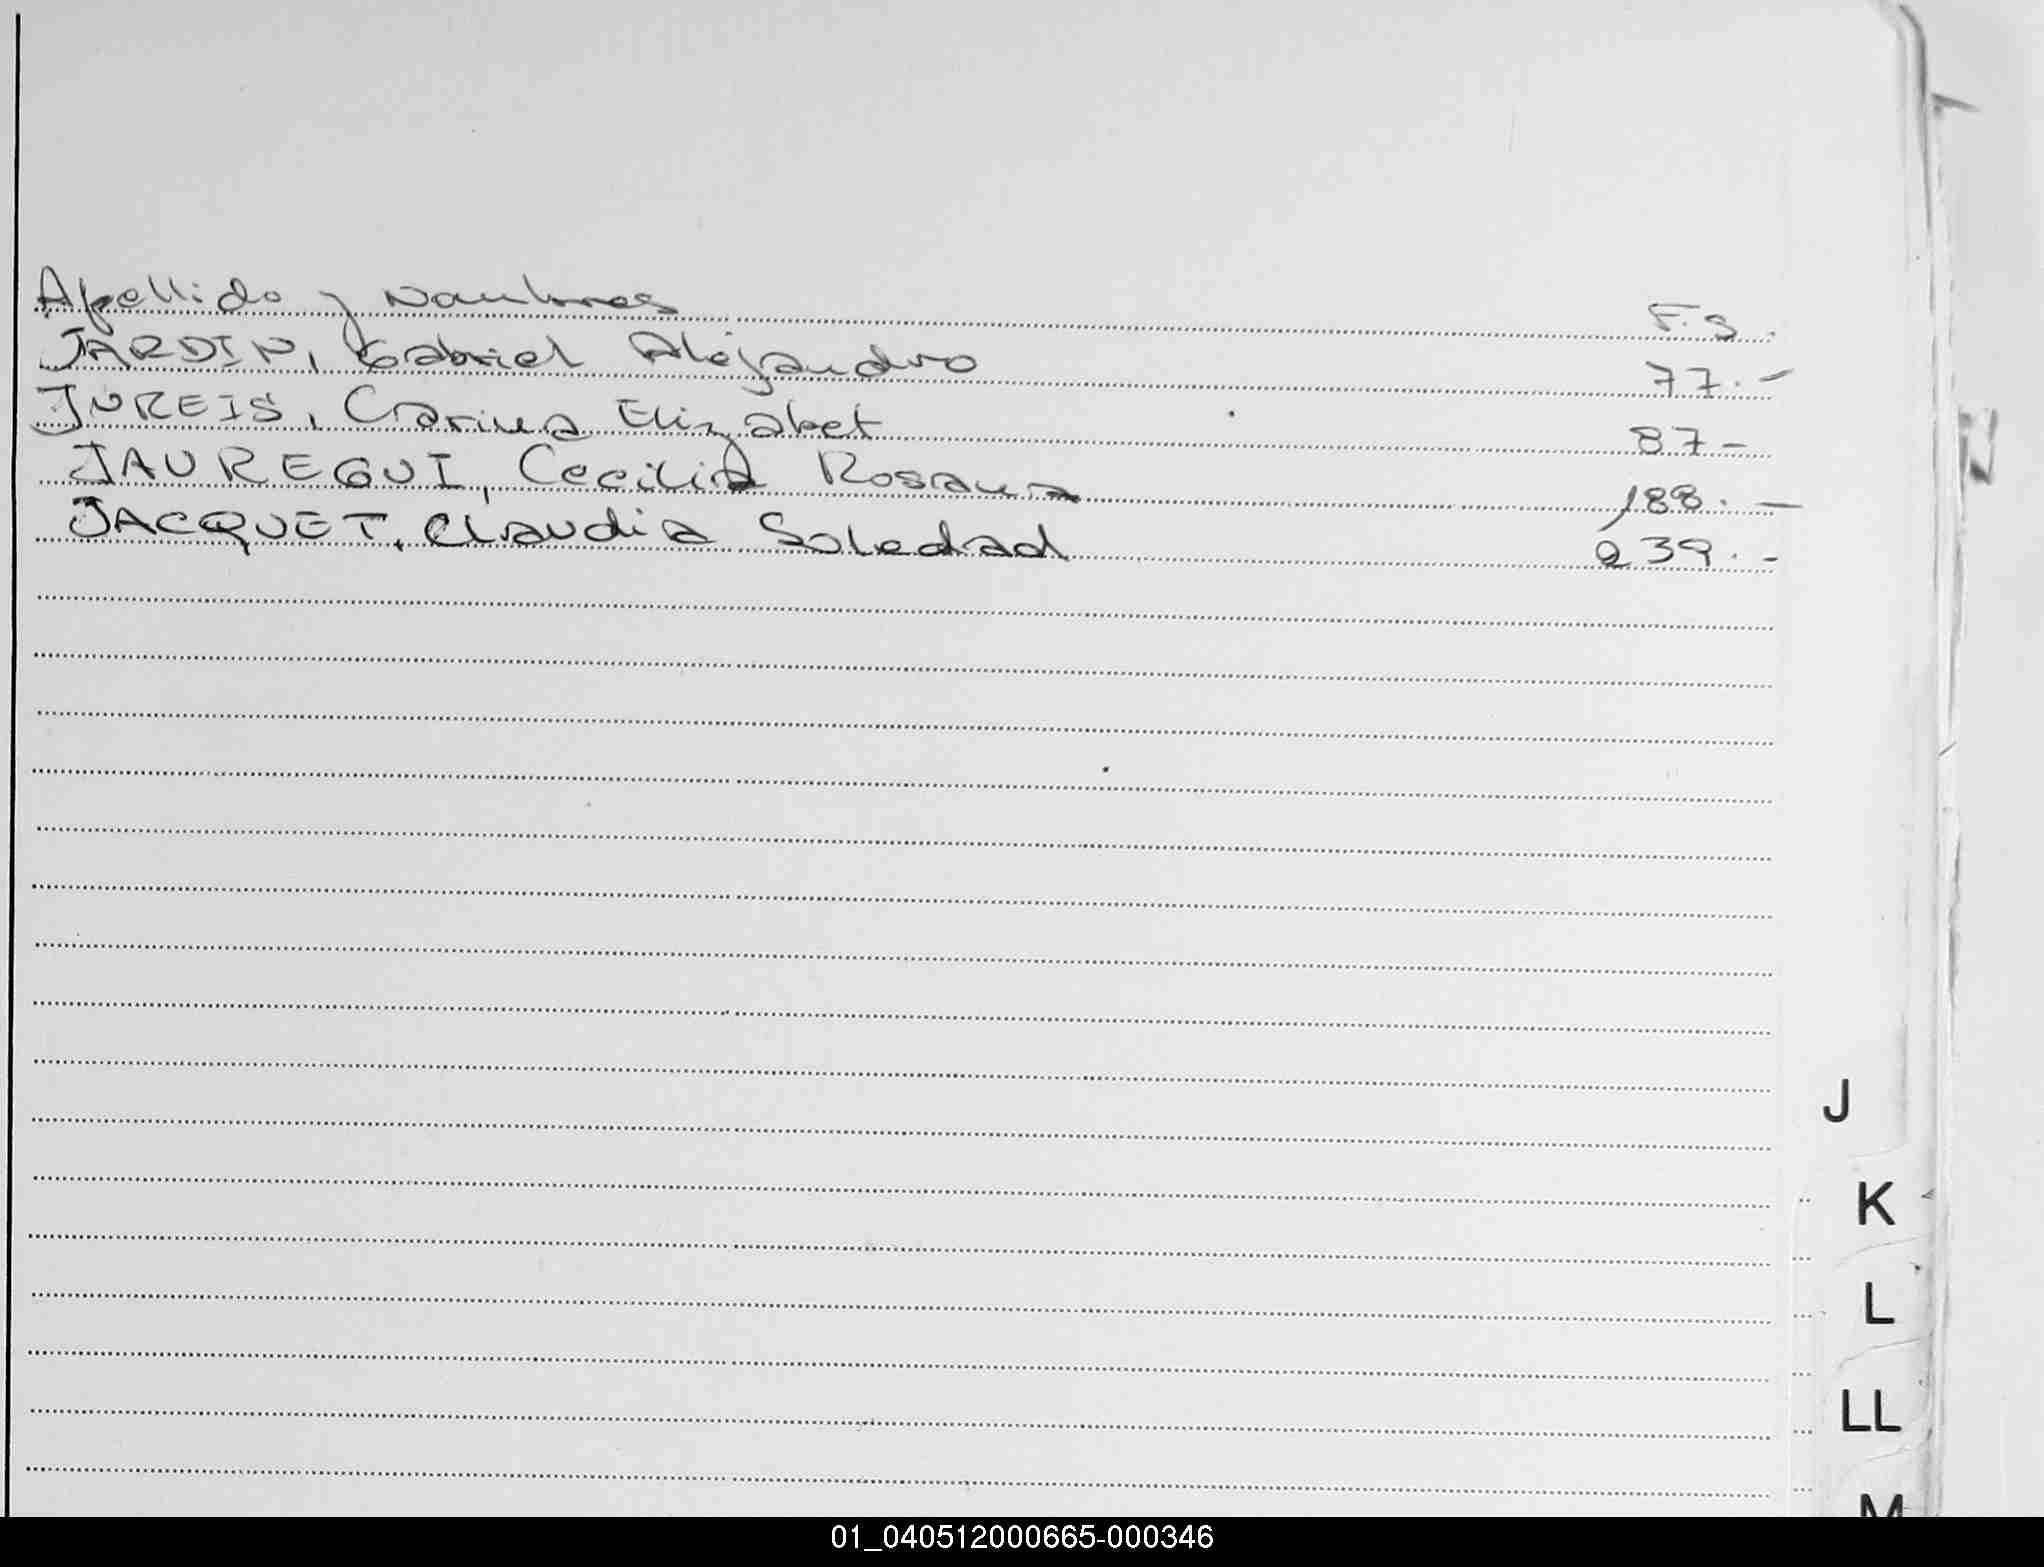 Apellido y Nombres F.S.
JARDIN, Gabriel Alejandro 77.-
JUREIS, Carina Elizabet 87-
JAUREGUI, Cecilia Rosana 188.-
JACQUET, Claudia Soledad 239.-
J
K
L
LL
M
01_040512000665-000346